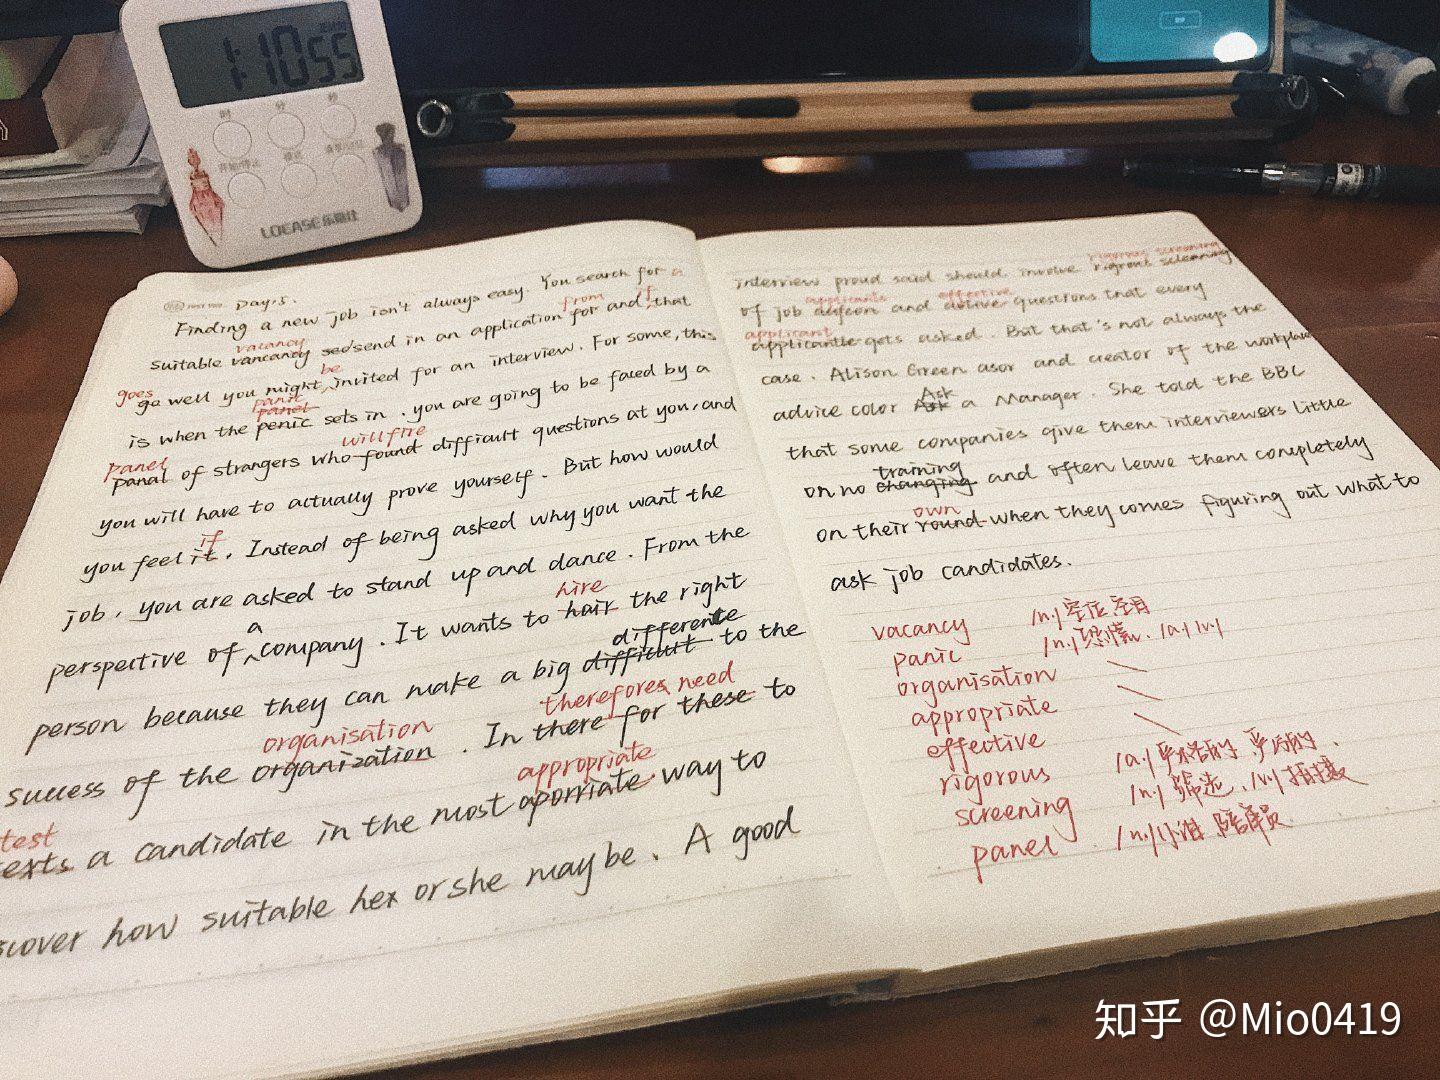 1:10 55
时
分
秒
LOEASE乐易仕
Day,5.
Finding a new job isn't always easy. You search for a
vacancy from if
suitable vancancy see send in an application for and, that
goes be
go well you might, invited for an interview. For some, this
panic
panel
is when the penic sets in. you are going to be faced by a
panel will fire
panal of strangers who found difficult questions at you, and
you will have to actually prove yourself. But how would
if
you feel it. Instead of being asked why you want the
job, you are asked to stand up and dance. From the
a hire
perspective of company. It wants to hair the right
difference
person because they can make a big difficult to the
organisation therefores need
success of the organization. In there for these to
test appropriate
a candidate in the most aporriate way to
how suitable hex or she may be. A good
rigorous screening
interview proud said should involve rigrout screanning
applicants effective
of job and questions that every
applicant
applicantle gets asked. But that's not always the
case. Alison Green asor and creator of the workplace
Ask
advice color Ask a Manager. She told the BBC
that some companies give them interviewers little
training
or no changing and often leave them completely
own
on their round when they comes figuring out what to
ask job candidates.
vacancy /n./ 空位 空日
panic /n./ 恐慌. /a./ /v./
organisation
appropriate
effective
rigorous /a./ 严格的, 严厉的.
screening /n./ 筛选, /v./ 拍摄
panel /n./ 小组 陪审员
知乎 @Mio0419